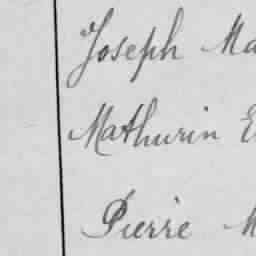 Joseph Ma
Mathurin E
Pierre M